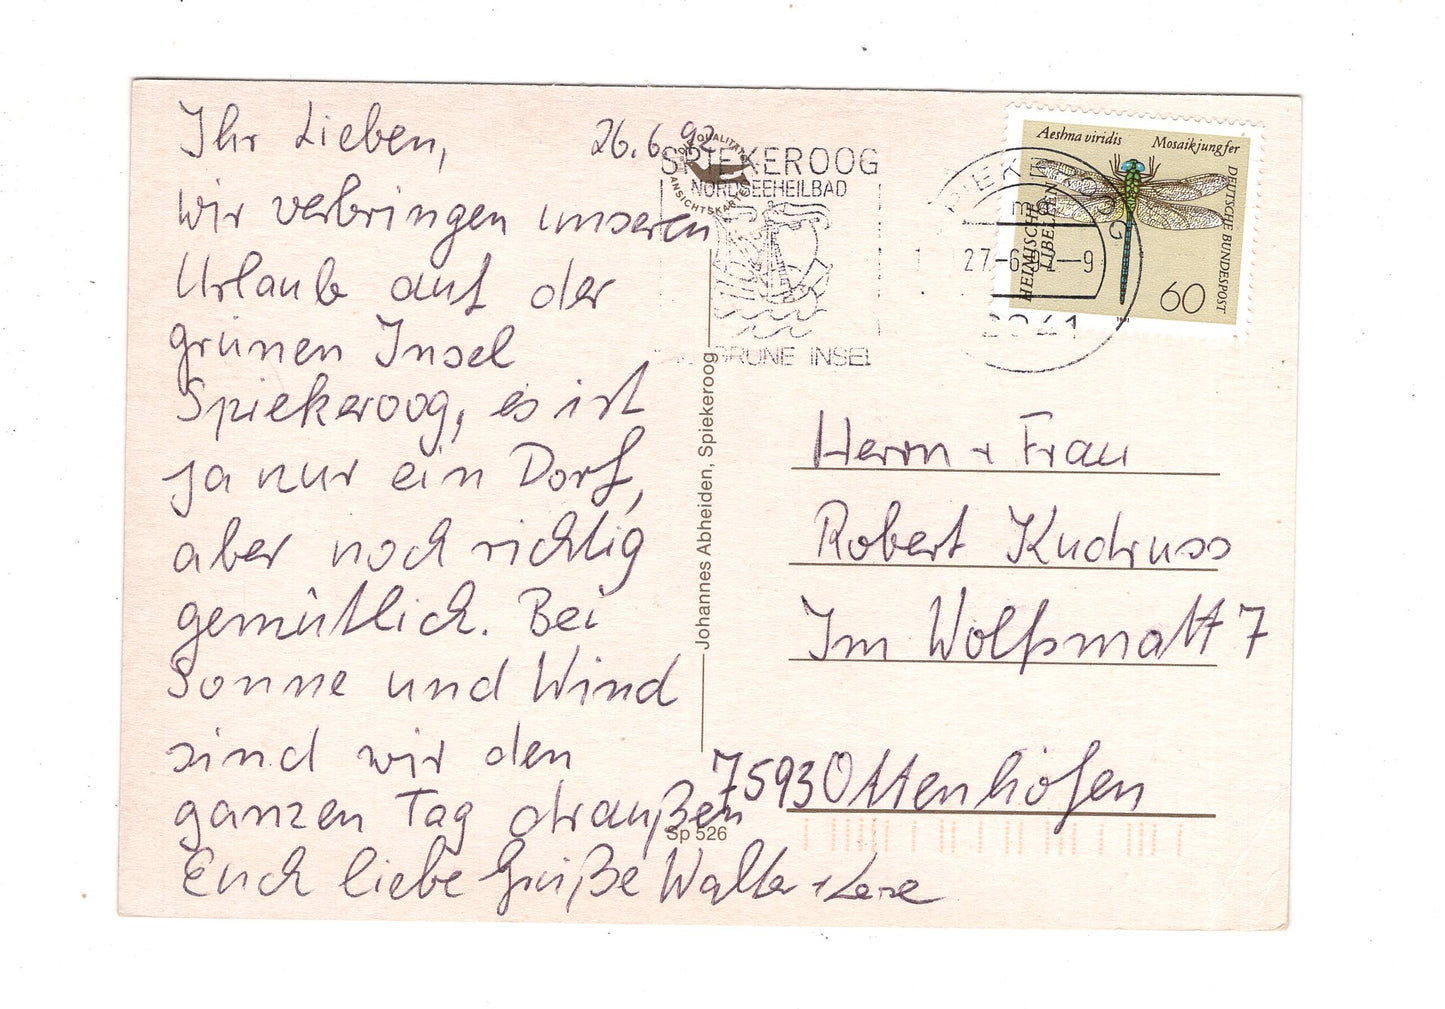 Ihr Lieben,
26.6.92
wir verbringen unseren
Urlaub auf der
grünen Insel
Spiekeroog, es ist
ja nur ein Dorf,
aber noch richtig
gemütlich. Bei
Sonne und Wind
sind wir den
ganzen Tag draußen
Euch liebe Grüße Walter +
SPIEKEROOG
NORDSEEHEILBAD
GRÜNE INSEL
QUALITÄTS
ANSICHTSKARTE
Johannes Abheiden, Spiekeroog
Sp 526
Aeshna viridis Mosaikjungfer
HEIMISCHE
LIBELLEN
DEUTSCHE BUNDESPOST
60
27.-6.92-9
2941
Herrn + Frau
Robert Kudruss
Im Wolfsmatt 7
7593 Ottenhöfen